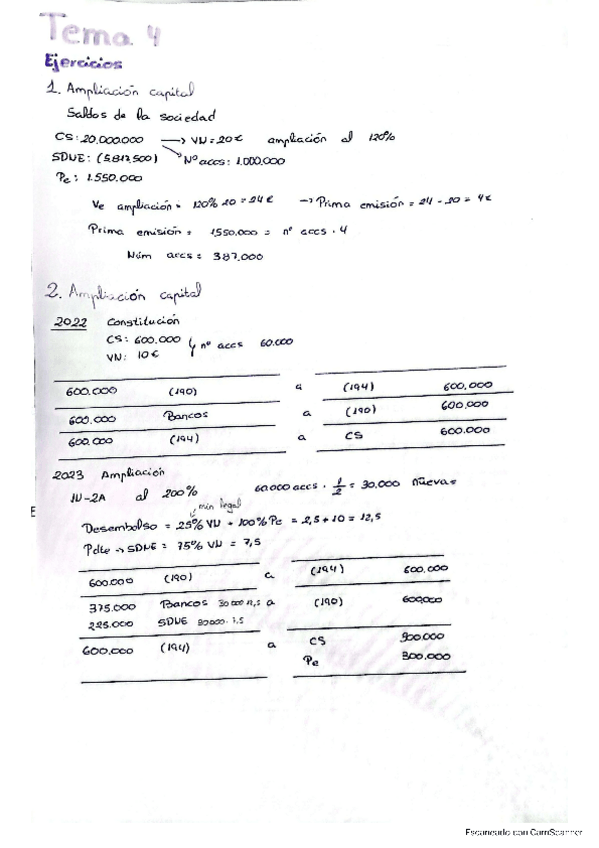 Tema 4
Ejercicios
1. Ampliación capital
Saldos de la sociedad
CS: 20.000.000 → VN = 20€ ampliación al 120%
SDNE: (5.812.500) Nº accs: 1.000.000
Pe: 1.550.000
Ve ampliación = 120% 20 = 24€ → Prima emisión = 24 - 20 = 4€
Prima emisión = 1550.000 = nº accs · 4
Núm accs = 387.000
2. Ampliación capital
2022 Constitución
CS: 600.000
VN: 10€ nº accs 60.000
600.000 (190) a (194) 600.000
600.000 Bancos a (190) 600.000
600.000 (194) a CS 600.000
2023 Ampliación
1N-2A al 200% 60.000 accs · 1/2 = 30.000 nuevas
min legal
Desembolso = 25% VN + 100% Pe = 2,5 + 10 = 12,5
Pdte → SDNE = 75% VN = 7,5
600.000 (190) a (194) 600.000
375.000 Bancos 30.000·12,5 a (190) 600.000
225.000 SDNE 30000·7,5
600.000 (194) a CS 300.000
Pe 300.000
E
Escaneado con CamScanner